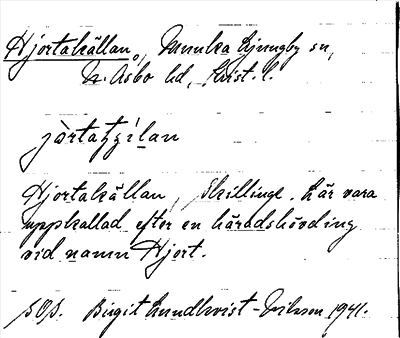 Hjortakällan, Munka Ljungby sn,
N. Åsbo hd, Krist. l.
Hjortakällan, Skillinge. Lär vara
uppkallad efter en häradshövding
vid namn Hjort.
Birgit Lundkvist-Erikson 1941.